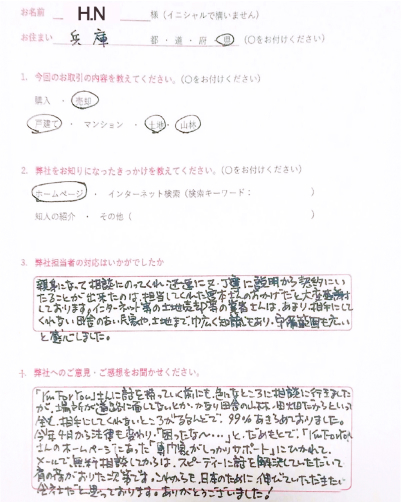 お名前 H.N 様（イニシャルで構いません）
お住まい 兵庫 都・道・府・県（〇をお付けください）
1. 今回のお取引の内容を教えてください。（〇をお付けください）
購入 ・ 売却
戸建て ・ マンション ・ 土地 ・ 山林
2. 弊社をお知りになったきっかけを教えてください。（〇をお付けください）
ホームページ ・ インターネット検索（検索キーワード： ）
知人の紹介 ・ その他（ ）
3. 弊社担当者の対応はいかがでしたか
親身になって相談にのってくれ 迅速に又、丁寧に説明から契約にい
たることが出来たのは、担当してくれた宮本さんのおかげだと大変感謝
しております。インターネット等の土地売却等の業者さんは、あまり相手にして
くれない田舎の古い民家や、土地まで、巾広く知識もあり、守備範囲も広い
と感心しました。
4. 弊社へのご意見・ご感想をお聞かせください。
「I'm For You」さんに話を持っていく前にも、色々なところに相談に行きました
が、場所が道路に面してないとか、かなり田舎の山林、田畑だからといって
全く、相手にしてくれないところがほとんどで、99%あきらめておりました。
今年4月から法律も変わり、「困ったな〜・・・」と、ためもとで、「I'm For You」
さんのホームページにあった「専門家がしっかりサポート」にひかれて、
メールで無料相談してからは、スピーディーに話を解決していただいて
肩の荷がおりた次第です。これからも、日本のために伸びていっていただきたい
会社だと思っております。ありがとうございました！